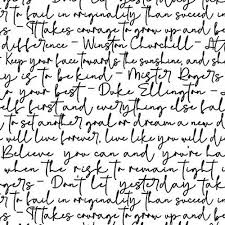 r to fail in originality than suceed in
s - It takes courage to grow up and be
difference - Winston Churchell - At
Keep your face towards the sunshine, and sh
y is to be kind - Mister Rogers
o your best - Duke Ellington - J
elf first and everything else fal
to set another goal or dream a new d
will live forever, live like you will di
Believe you can and you're ha
when the risk to remain tight i
gers - Don't let yesterday take
r to fail in originality than suceed in
s - It takes courage to grow up and be